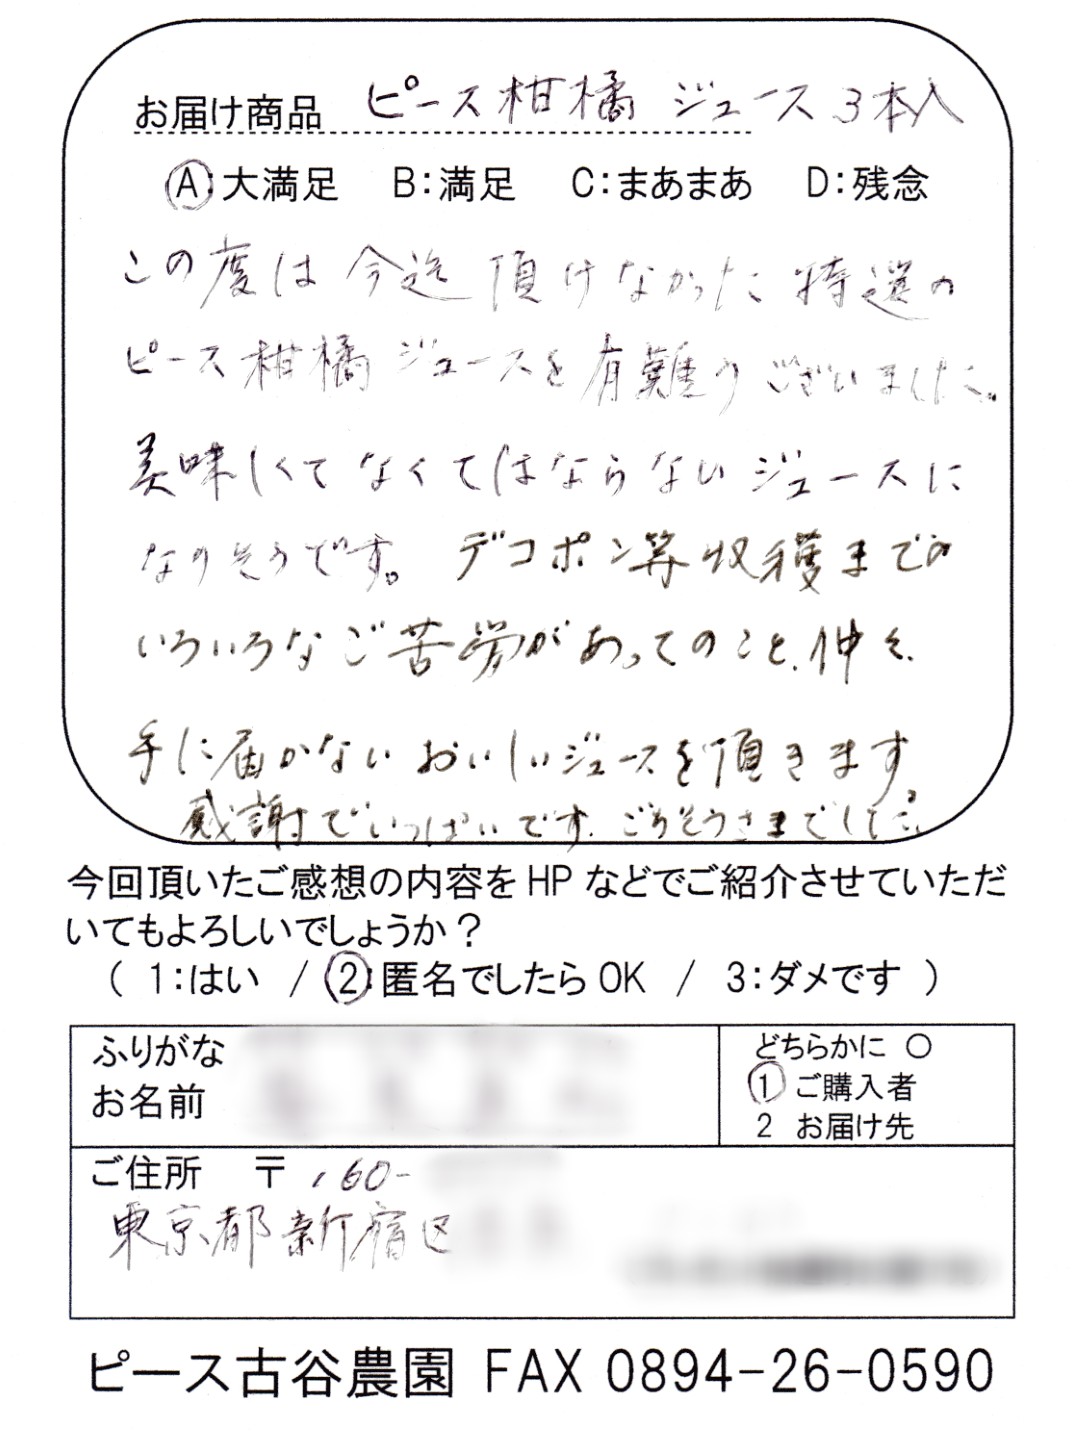 お届け商品 ピース柑橘ジュース3本入
A:大満足 B:満足 C:まあまあ D:残念
この度は今迄頂けなかった特選の
ピース柑橘ジュースを有難うございました。
美味しくてなくてはならないジュースに
なりそうです。デコポン等収穫までの
いろいろなご苦労があってのこと、仲々
手に届かないおいしいジュースを頂きます
感謝でいっぱいです。ごちそうさまでした。
今回頂いたご感想の内容をHPなどでご紹介させていただ
いてもよろしいでしょうか?
( 1:はい / 2:匿名でしたらOK / 3:ダメです )
ふりがな
お名前
どちらかに ○
1 ご購入者
2 お届け先
ご住所 〒160-
東京都新宿区
ピース古谷農園 FAX 0894-26-0590